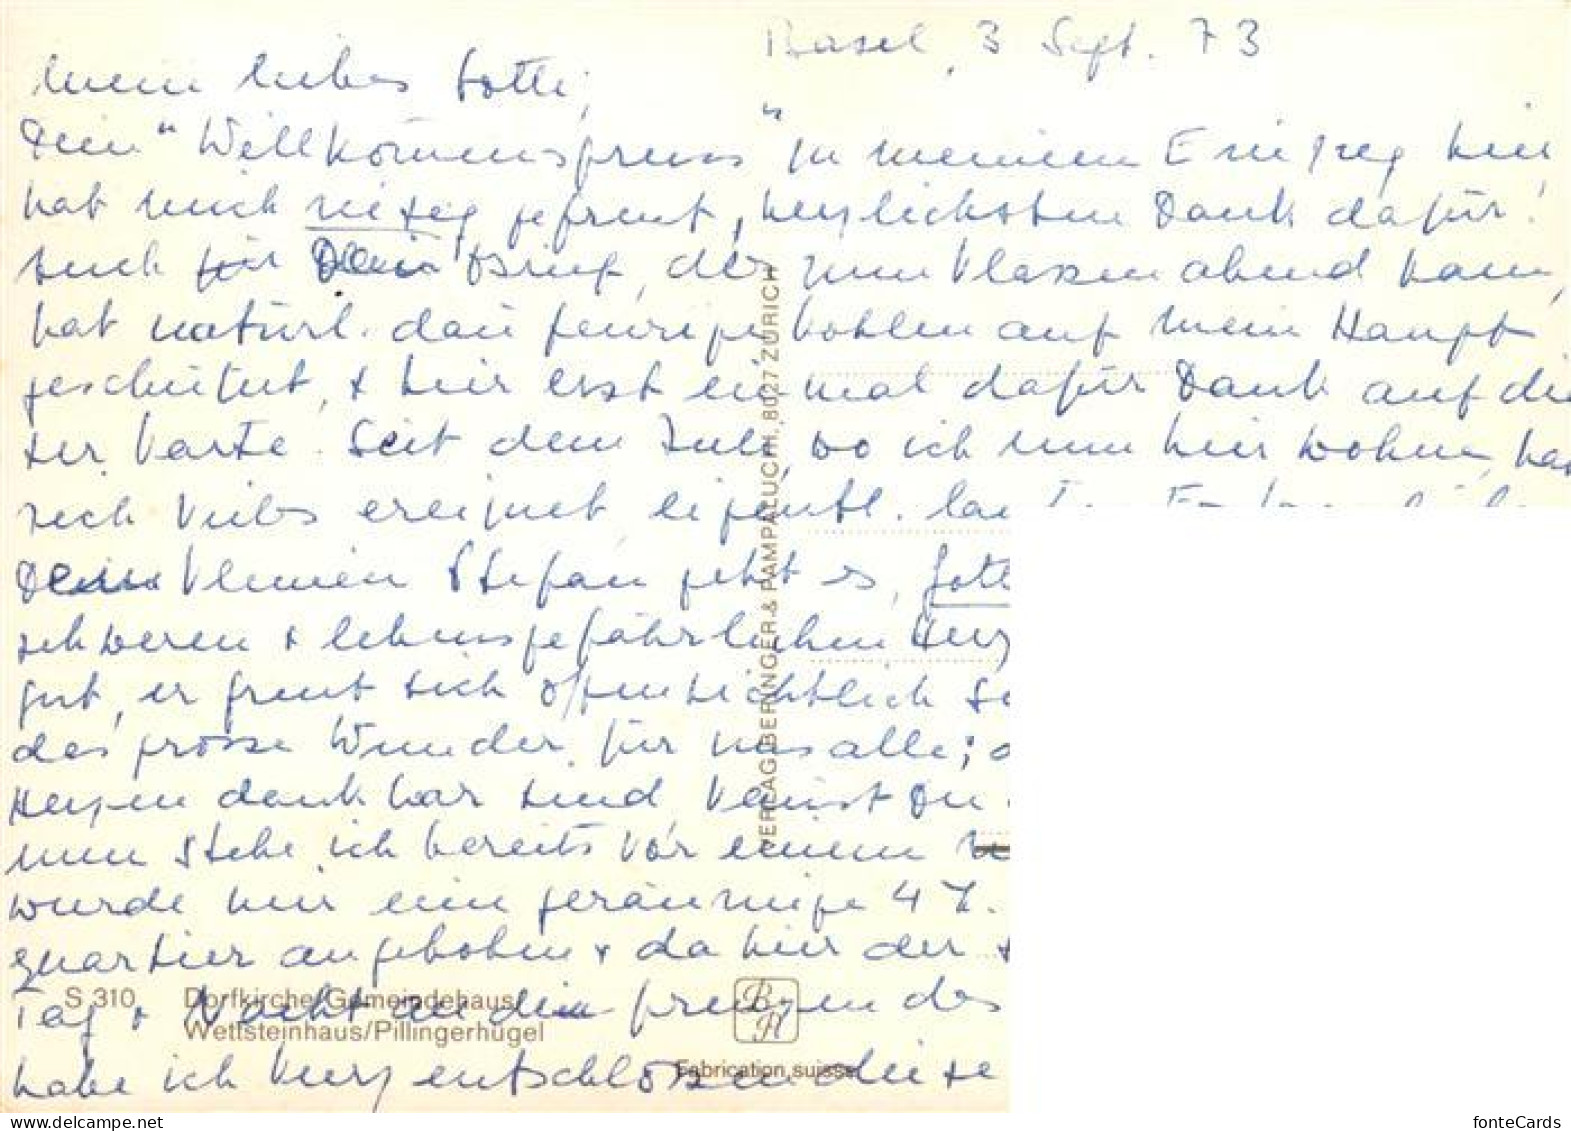 Basel, 3 Sept. 73
Mein liebes Lotti,
Dein "Willkommensgruss" zu meinem Einzug hier
hat mich riesig gefreut, herzlichsten Dank dafür!
Auch für Dein Brief, der zum Klassenabend kam,
hat natürl. dan feurige Kohlen auf mein Haupt
geschüttet, + hier erst einmal dafür Dank auf die
ser Karte. Seit dem Juli, wo ich nun hier wohne, hat
sich vieles ereignet, eigentl.
Dem kleinen Stefan geht es, Gott
schweren + lebensgefährlichen Herz
gut, er freut sich offensichtlich se
das grosse Wunder für uns alle;
Herzen dankbar sind, kannst Du
nun stehe ich bereits vor einem
wurde mir eine geräumige 4 Z.
quartier angeboten + da hier der
Tag + Nacht an die Grenzen des
habe ich kurz entschlossen diese
S 310 Dorfkirche/Gemeindehaus
Wettsteinhaus/Pillingerhügel
VERLAG BERINGER & PAMPALUCHI, 8027 ZÜRICH
Fabrication suisse
delcampe.net
fonteCards